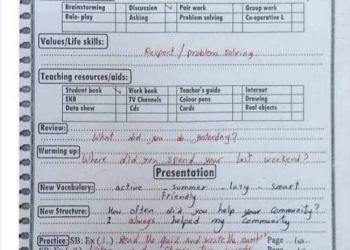 Brainstorming Discussion Pair work Group work
Role-play Asking Problem solving Co-operative L
Values/Life skills:
Respect / problem solving
Teaching resources/aids:
Student book Work book Teacher's guide Internet
EKB TV Channels Colour pens Drawing
Data show Cds Cards Real objects
Review:
What did you do yesterday?
Warming up:
Where did you spend your last weekend?
Presentation
New Vocabulary: active - summer - lazy - smart
Friendly
New Structure: How often did you help your community?
I always helped my community
Practice: SB: Ex (.1..) Read the quiz and write the Page 10